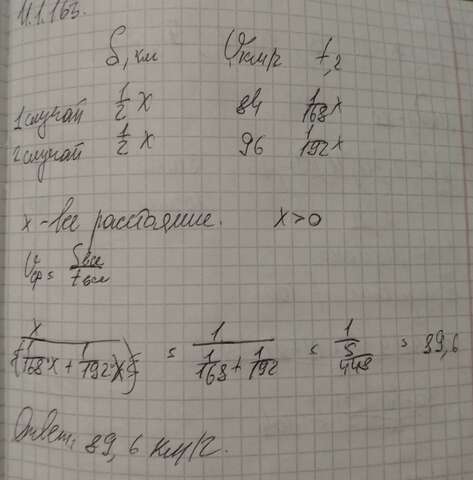 11.1.163.
S, км V, км/ч t, ч
1 случай 1/2 x 84 1/168 x
2 случай 1/2 x 96 1/192 x
x - все расстояние. x>0
Vср = Sвсе/tвсе
x/(1/168 x + 1/192 x) = 1/(1/168 + 1/192) = 1/(5/448) = 89,6
Ответ: 89,6 км/ч.